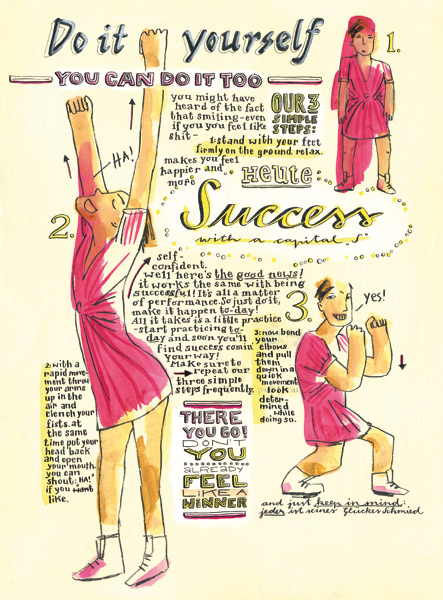 Do it yourself
YOU CAN DO IT TOO
1.
you might have
heard of the fact
that smiling-even
if you you feel like
shit-
makes you feel
happier and
more
self-
confident.
well here's the good news!
it works the same with being
successful! It's all a matter
of performance. So just do it,
make it happen to-day!
All it takes is a little practice
-start practicing to-
day and soon you'll
find success comin'
your way!
Make sure to
repeat our
three simple
steps frequently.
OUR 3
SIMPLE
STEPS:
1: stand with your feet
firmly on the ground relax.
HEUTE:
Success
with a capital „S"
HA!
2.
2: with a
rapid move-
ment throw
your arms
up in the
air and
clench your
fists. at
the same
time put your
head back
and open
your mouth.
you can
shout: "HA!"
if you want
like.
3.
yes!
3: now bend
your
elbows
and pull
them
down in a
quick
movement
look
deter-
mined
while
doing so.
THERE
YOU GO!
DON'T
YOU
ALREADY
FEEL
LIKE A
WINNER
and just keep in mind:
jeder ist seines Glückes Schmied